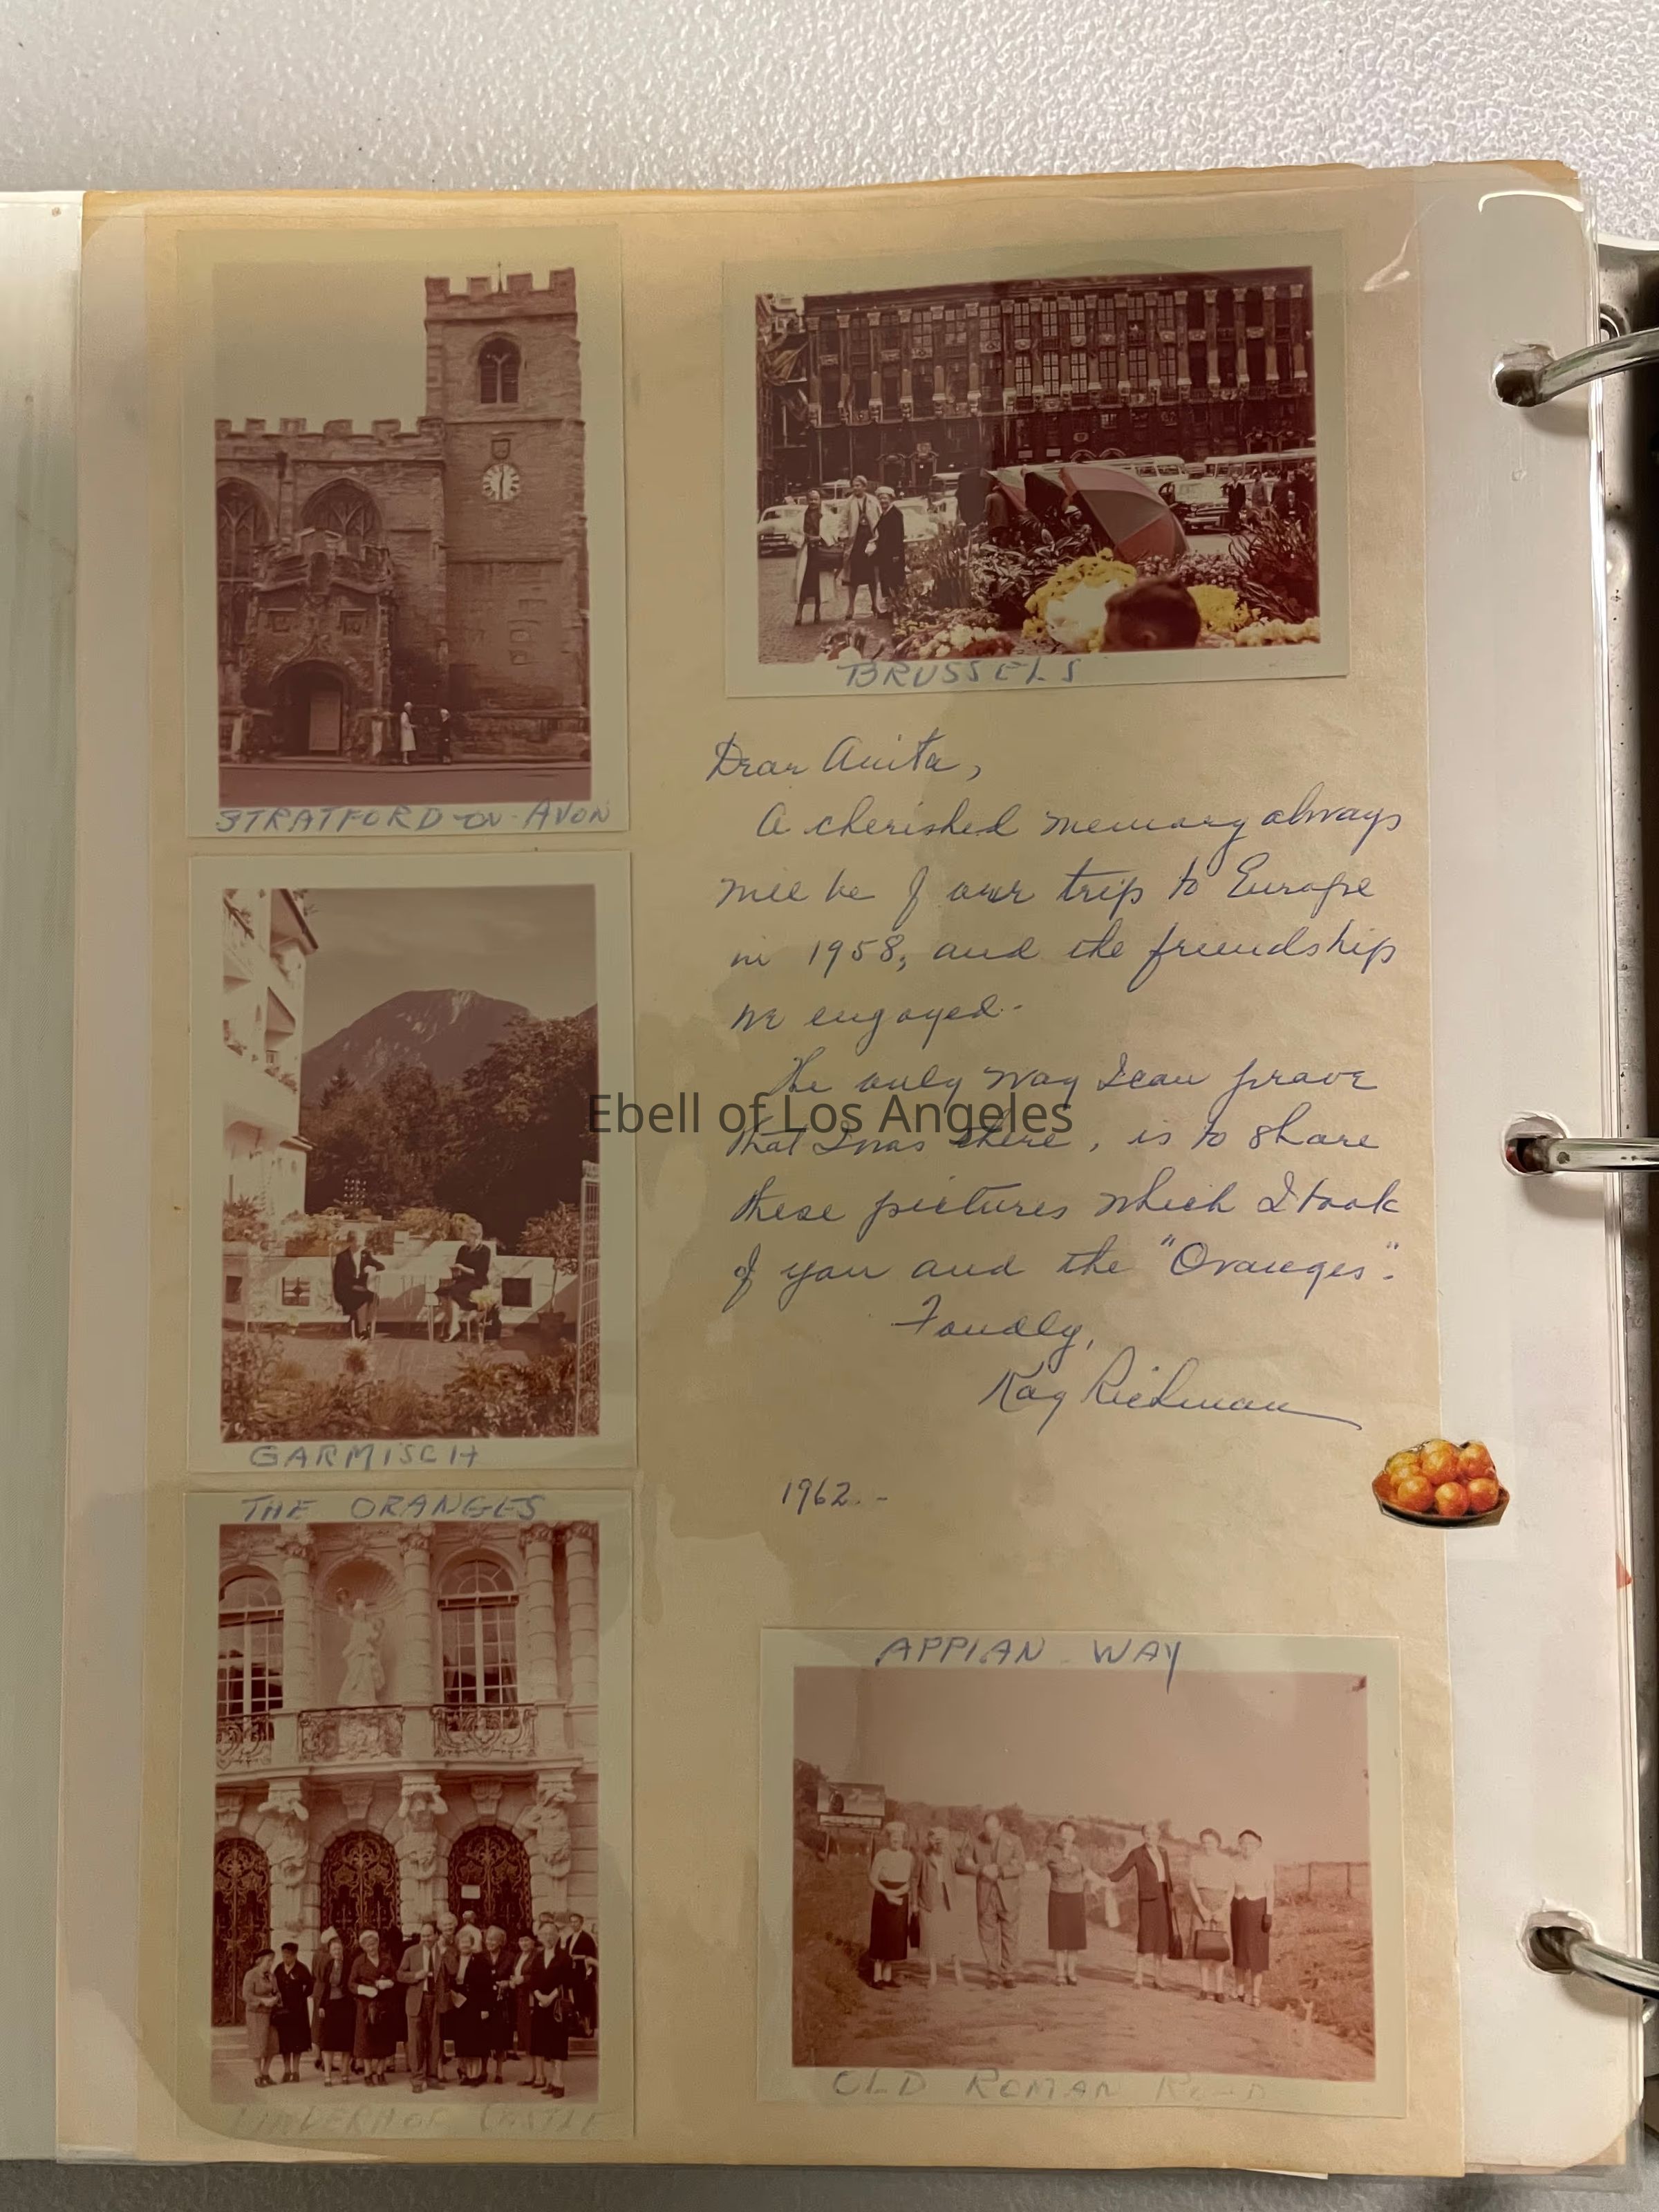 STRATFORD-ON-AVON
BRUSSELS
Dear Anita,
A cherished memory always
will be of our trip to Europe
in 1958, and the friendship
we enjoyed.
The only way I can prove
that I was there, is to share
these pictures which I took
of you and the "Oranges".
Fondly,
Kay
1962.-
GARMISCH
THE ORANGES
LINDERHOF CASTLE
APPIAN WAY
OLD ROMAN ROAD
Ebell of Los Angeles